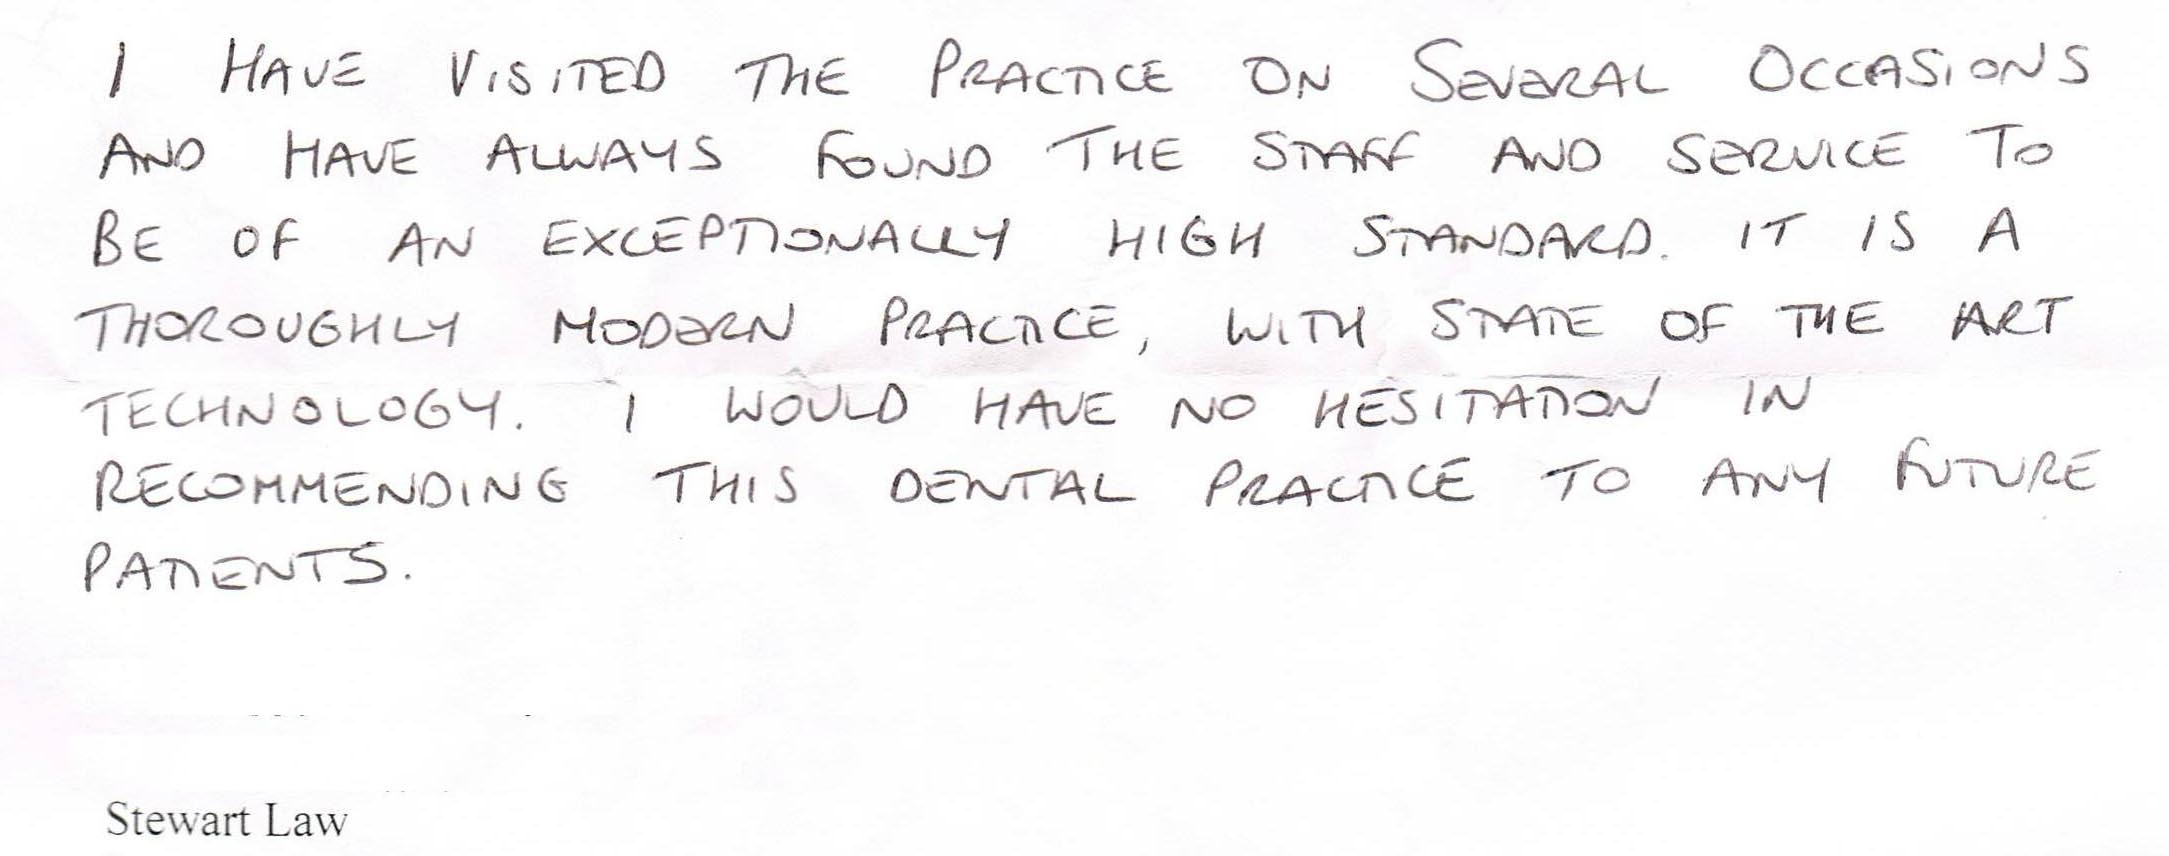 I HAVE VISITED THE PRACTICE ON SEVERAL OCCASIONS
AND HAVE ALWAYS FOUND THE STAFF AND SERVICE TO
BE OF AN EXCEPTIONALLY HIGH STANDARD. IT IS A
THOROUGHLY MODERN PRACTICE, WITH STATE OF THE ART
TECHNOLOGY. I WOULD HAVE NO HESITATION IN
RECOMMENDING THIS DENTAL PRACTICE TO ANY FUTURE
PATIENTS.
Stewart Law